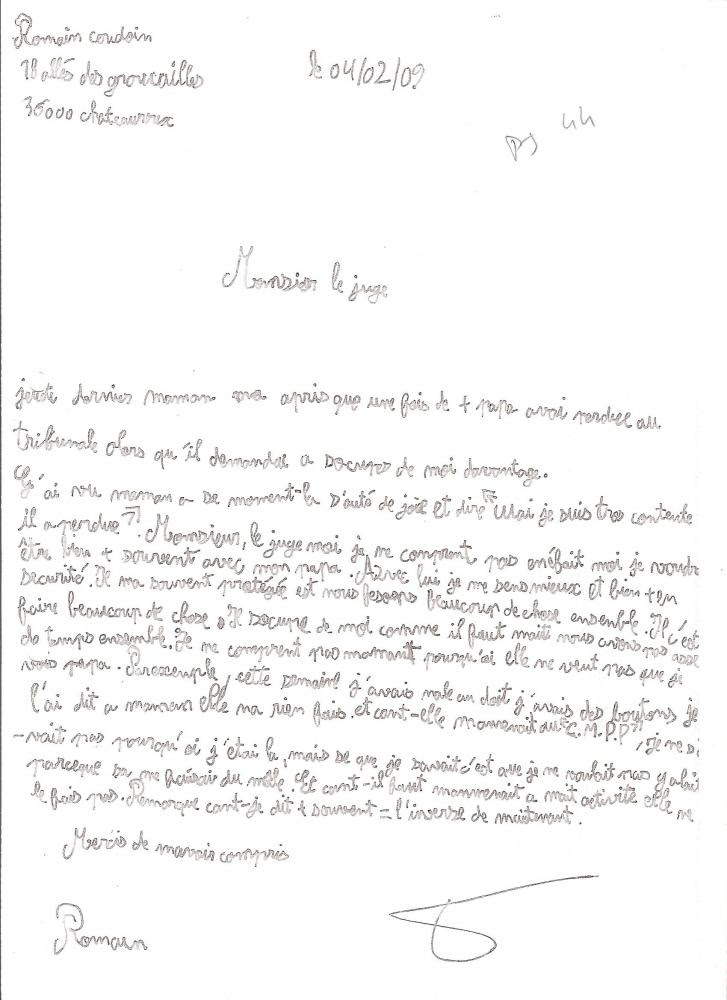 Romain coudoin
18 allés des groucailles
le 04/02/09
36000 chateauroux
44
Monsieur le juge
dernier maman ma apris que une fois de + papa avai perdue au
tribunale alors qu'il demandai a socups de moi davantage.
G'ai vu maman a se moment-la s'auté de joie et dire "Uai je suis tres contente
il a perdue". Monsieur, le juge moi je ne comprent pas enéfait moi je voudr
être bien + souvent avec mon papa. Azvec lui je me sens mieux et bien + en
securité. Il ma souvent protégée est nous fesons beaucoup de chose ensemble. Il c'est
faire beaucoup de chose. Il socupe de moi comme il faut mais nous avons pas asse
de temps ensemble. Je ne comprent pas maman pourqu'oi elle ne veut pas que je
vois papa. Parexemple, cette semaine j'avais male au doit j'avais des boutons je
l'ai dit a maman elle ma rien fais et cant-elle m'amenait au "C.M.P.P", je ne s
-vait pas pourqu'oi j'étai la, mais se que je savait c'est que je ne voulait pas y alait
parceque sa me faisais du male. Et cant-il faut m'ammenait a mait activité elle ne
le fais pas. Remarque cant-je dit + souvent = l'inverse de maintenant.
Mercis de mavais compris
Romain